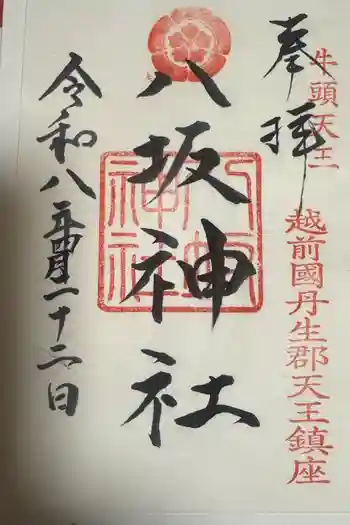 牛頭天王
奉拝
越前國丹生郡天王鎮座
八坂神社
八坂神社
令和八年四月二十二日